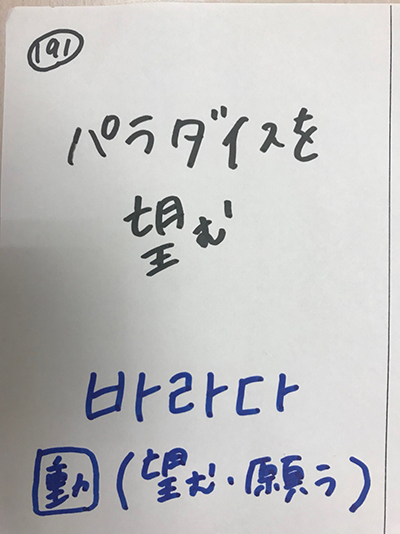 191
パラダイスを
望む
바라다
動 (望む・願う)